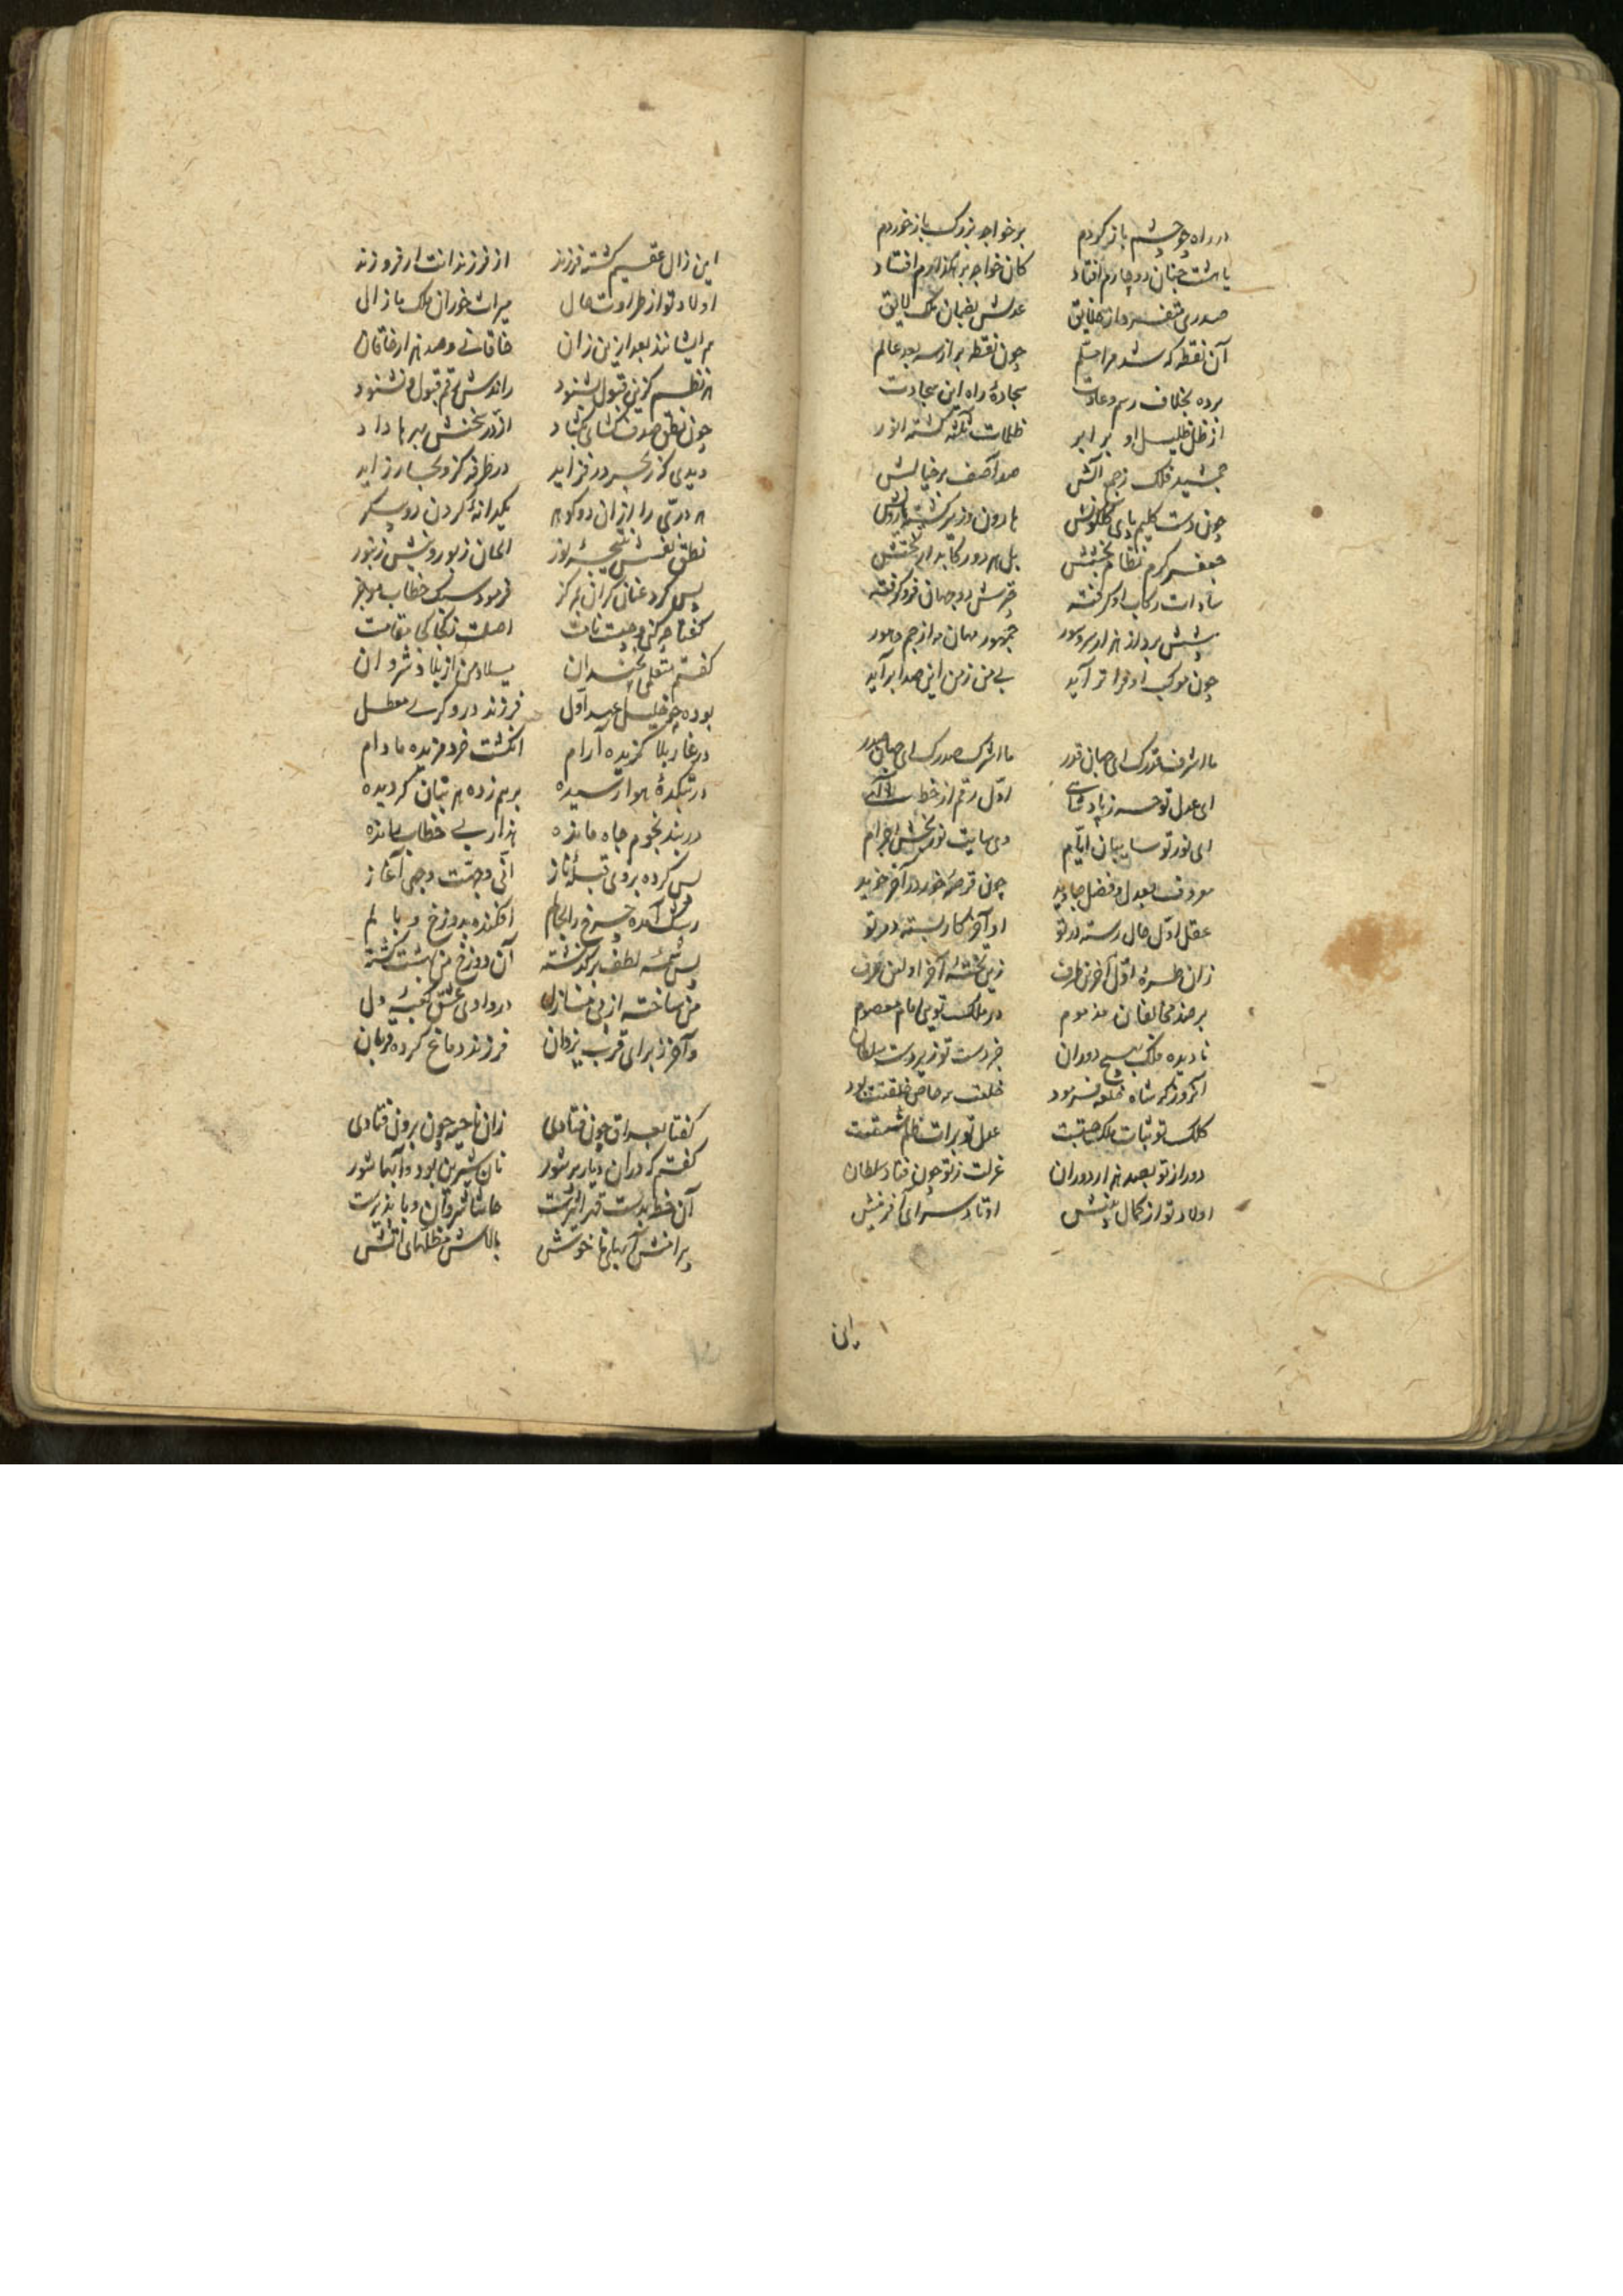 در راه چو چشم باز کردم بر خواجه بزرک باز خوردم
یا هشت جنان دوچارم افتاد کان خواجه بر هکذارم افتاد
صدری متفرد از خلایق عدلش بضمان ملک لایق
آن نقطه که شد مرا مسلم چون نقطه بر از سه بعد عالم
برده بخلاف رسم و عادت سجادهٔ راه این سجادت
از ظل ظلیل او برابر ظلمات کشته انور
جمشید فلک آتش صد آصف بر خیالش
چون دست کلیم پای هارون وزیر کشته
جعفر کرم نظام بخشش بل هر دو رکابدار رخشش
سادات رکاب او کرفته چترش دو جهان فرو کرفته
پیشش برد از هزار سرور جمهور مهان
چون موکب او فرا تر آید بی من ز من این صدا بر آید
ما اشرف قدرک ای جهان قدر ما اشرک صدرک ای جهان صدر
ای عدل تو اول رقم از خط
ای نور تو سایبان ایام وی سایت نور بخش اجرام
معروف بعدل و فضل جاوید چون قرصهٔ خور در آخر خوید
عقل اول حال رسته در تو او آخر کار بسته در تو
زان طرهٔ اول آخرین طرف زین تختهٔ آخر اولین حرف
بر ضد مخالفان مذموم در ملک تویی امام معصوم
نادیده فلک بهیچ دوران جز دست تو زیر دست سلطان
آنروز که شاه خلعه فرمود خلعت بر خاص خلقتت بود
کلک تو ثبات ملک عدل تو برات ظلم
دور از تو بصد هزار دوران عزلت ز تو چون فتاد سلطان
اولاد تو از کمال بینش اوتاد سرای آفرینش
این زال عقیم کشته فرزند از فرزندانت
اولاد تو از طراوت حال میراث خوران ملک با زال
هم ایشانند بعد ازین زان خاقانی و صد هزار خاقان
هر نظم کزین قبول بشنود راندش رقم قبول و نشنود
چون نطق صدف کشای بکشاد از در سخنش
دیدی کز بحر در فزاید
هر دری را از آن دو کوهر یکدانهٔ کردن دو پیکر
نطق نفسش نتیجهٔ نور الحان زبور و نیش زنبور
پس کرد عنان کران بمرکز فرمود سبک خطاب موجز
کفتا چه کسی و چیست نامت اصلت ز کجا کجا مقامت
کفتم متعلمی سخندان میلاد من از بلاد شروان
بوده چو خلیل عهد اول فرزند دروکری معطل
در غار بلا کزیده آرام انکشت خرد مزیده مادام
در بتکدهٔ هوا رسیده برهم زده هر بتان که دیده
در بند نجوم جاه مانده هذا ربی خطاب مانده
پس کرده بروی قبله ناز انی وجهت وجهی آغاز
رشک آمده چرخ را بجاهم افکنده بدوزخ وبالم
پس نسمهٔ لطف بر کذشته آن دوزخ من بهشت کشته
من ساخته از پی منازل در وادی عشق کعبهٔ دل
و آخر ز برای قرب یزدان فرزند دماغ کرده قربان
کفتا بعراق چون فتادی زان ناحیه چون برون فتادی
کفتم که در آن دیار پر شور نان شیرین بود و آبها شور
آن خط بدست قهر حاشا شروان وبا پذیرست
پیرامنش آبهای ناخوش بالاش مظلهای آتش